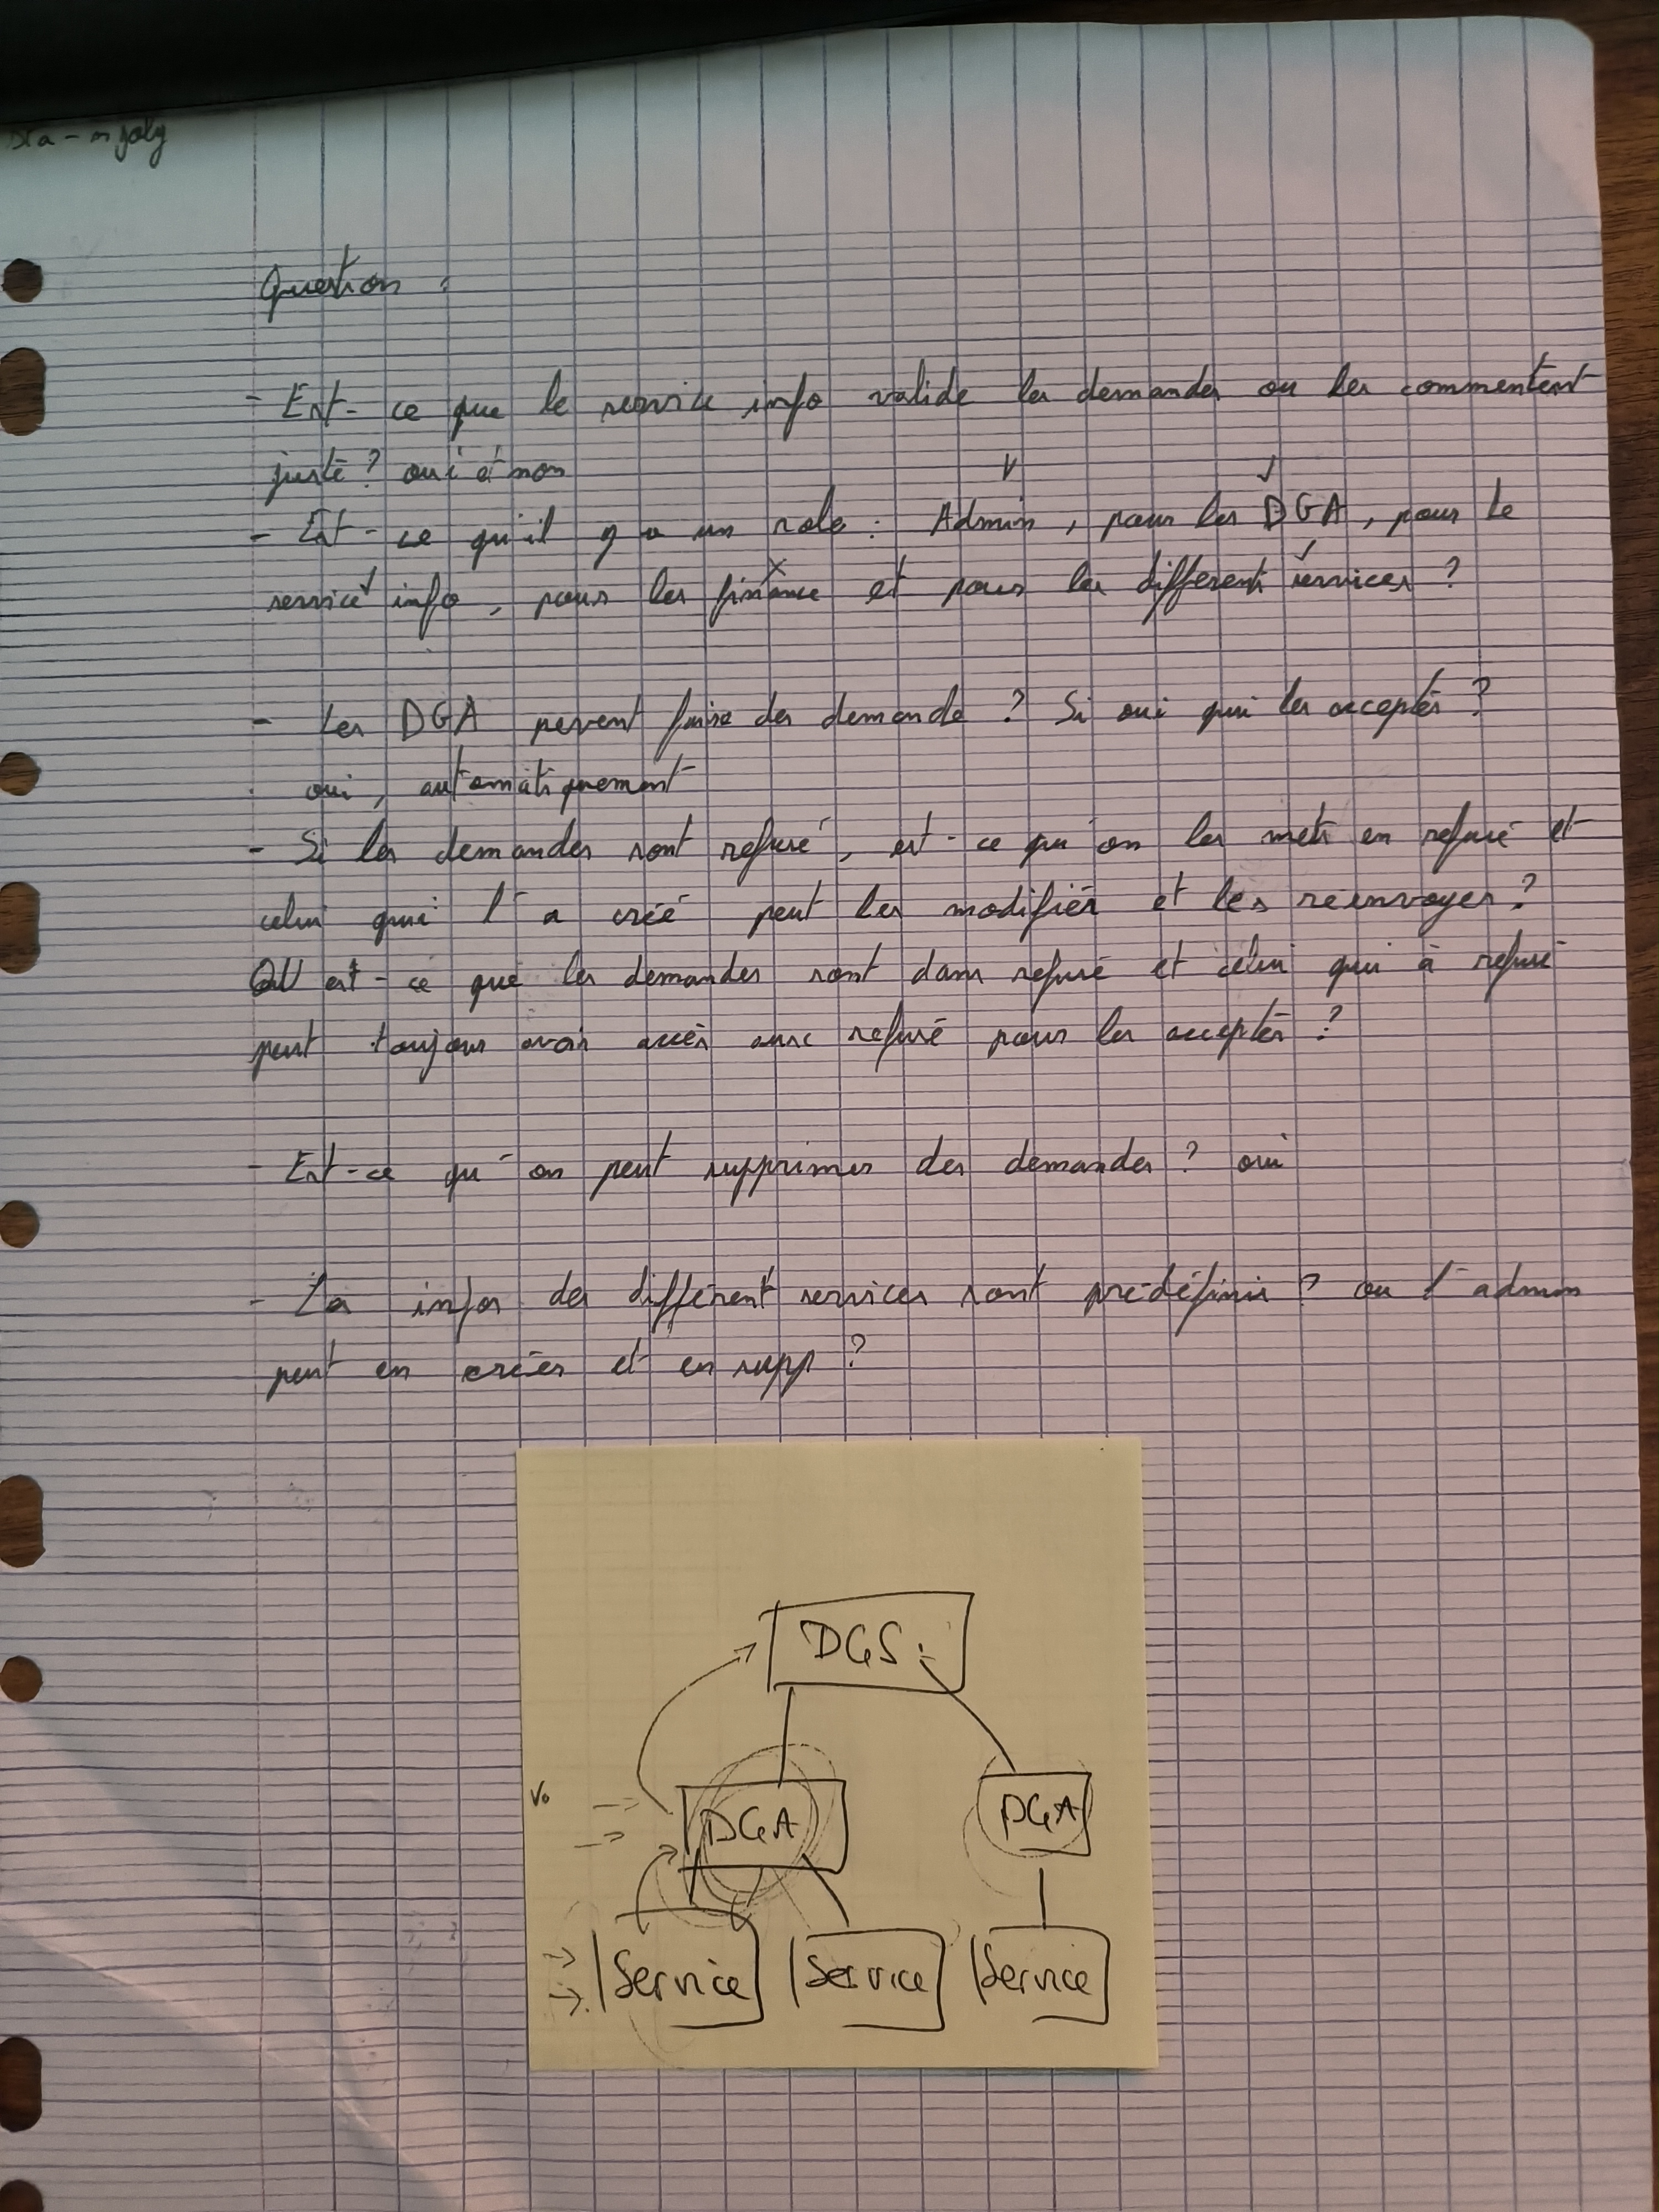 Question :
- Est-ce que le service info valide les demandes ou les commentent
juste ? oui et non
- Est-ce qu'il y a un role : Admin, pour les DGA, pour le
service info, pour les finance et pour les different services ?
- Les DGA pevent faire des demande ? Si oui qui les acceptés ?
oui, automatiquement
- Si les demandes sont refusé, est-ce qu'on les mets en refusé et
celui qui l'a créé peut les modifiér et les réenvoyer ?
OU est-ce que les demandes sont dans refusé et celui qui à refusé
peut toujours avoir accès aux refusé pour les acceptés ?
- Est-ce qu'on peut supprimer des demandes ? oui
- Les infos des différent services sont prédéfinis ? ou l'admin
peut en créés et en supp ?
DGS
DGA
DGA
Service
Service
Service